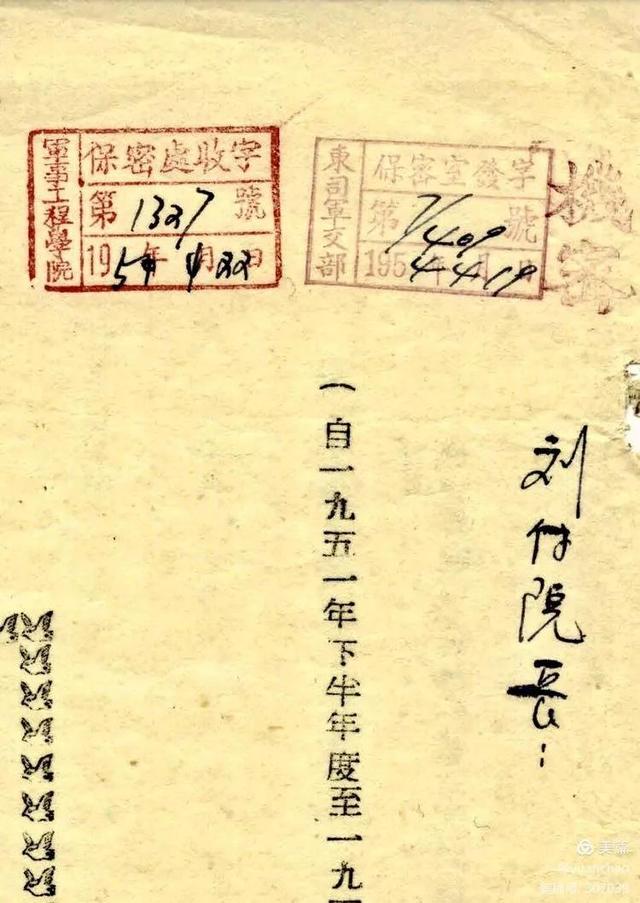 軍事工程學院
保密處收字
第1327號
1954年4月22日
東司軍交部
保密室發字
第7/409號
1954年4月19日
機密
刘付院長：
（自一九五一年下半年度至一九
美篇